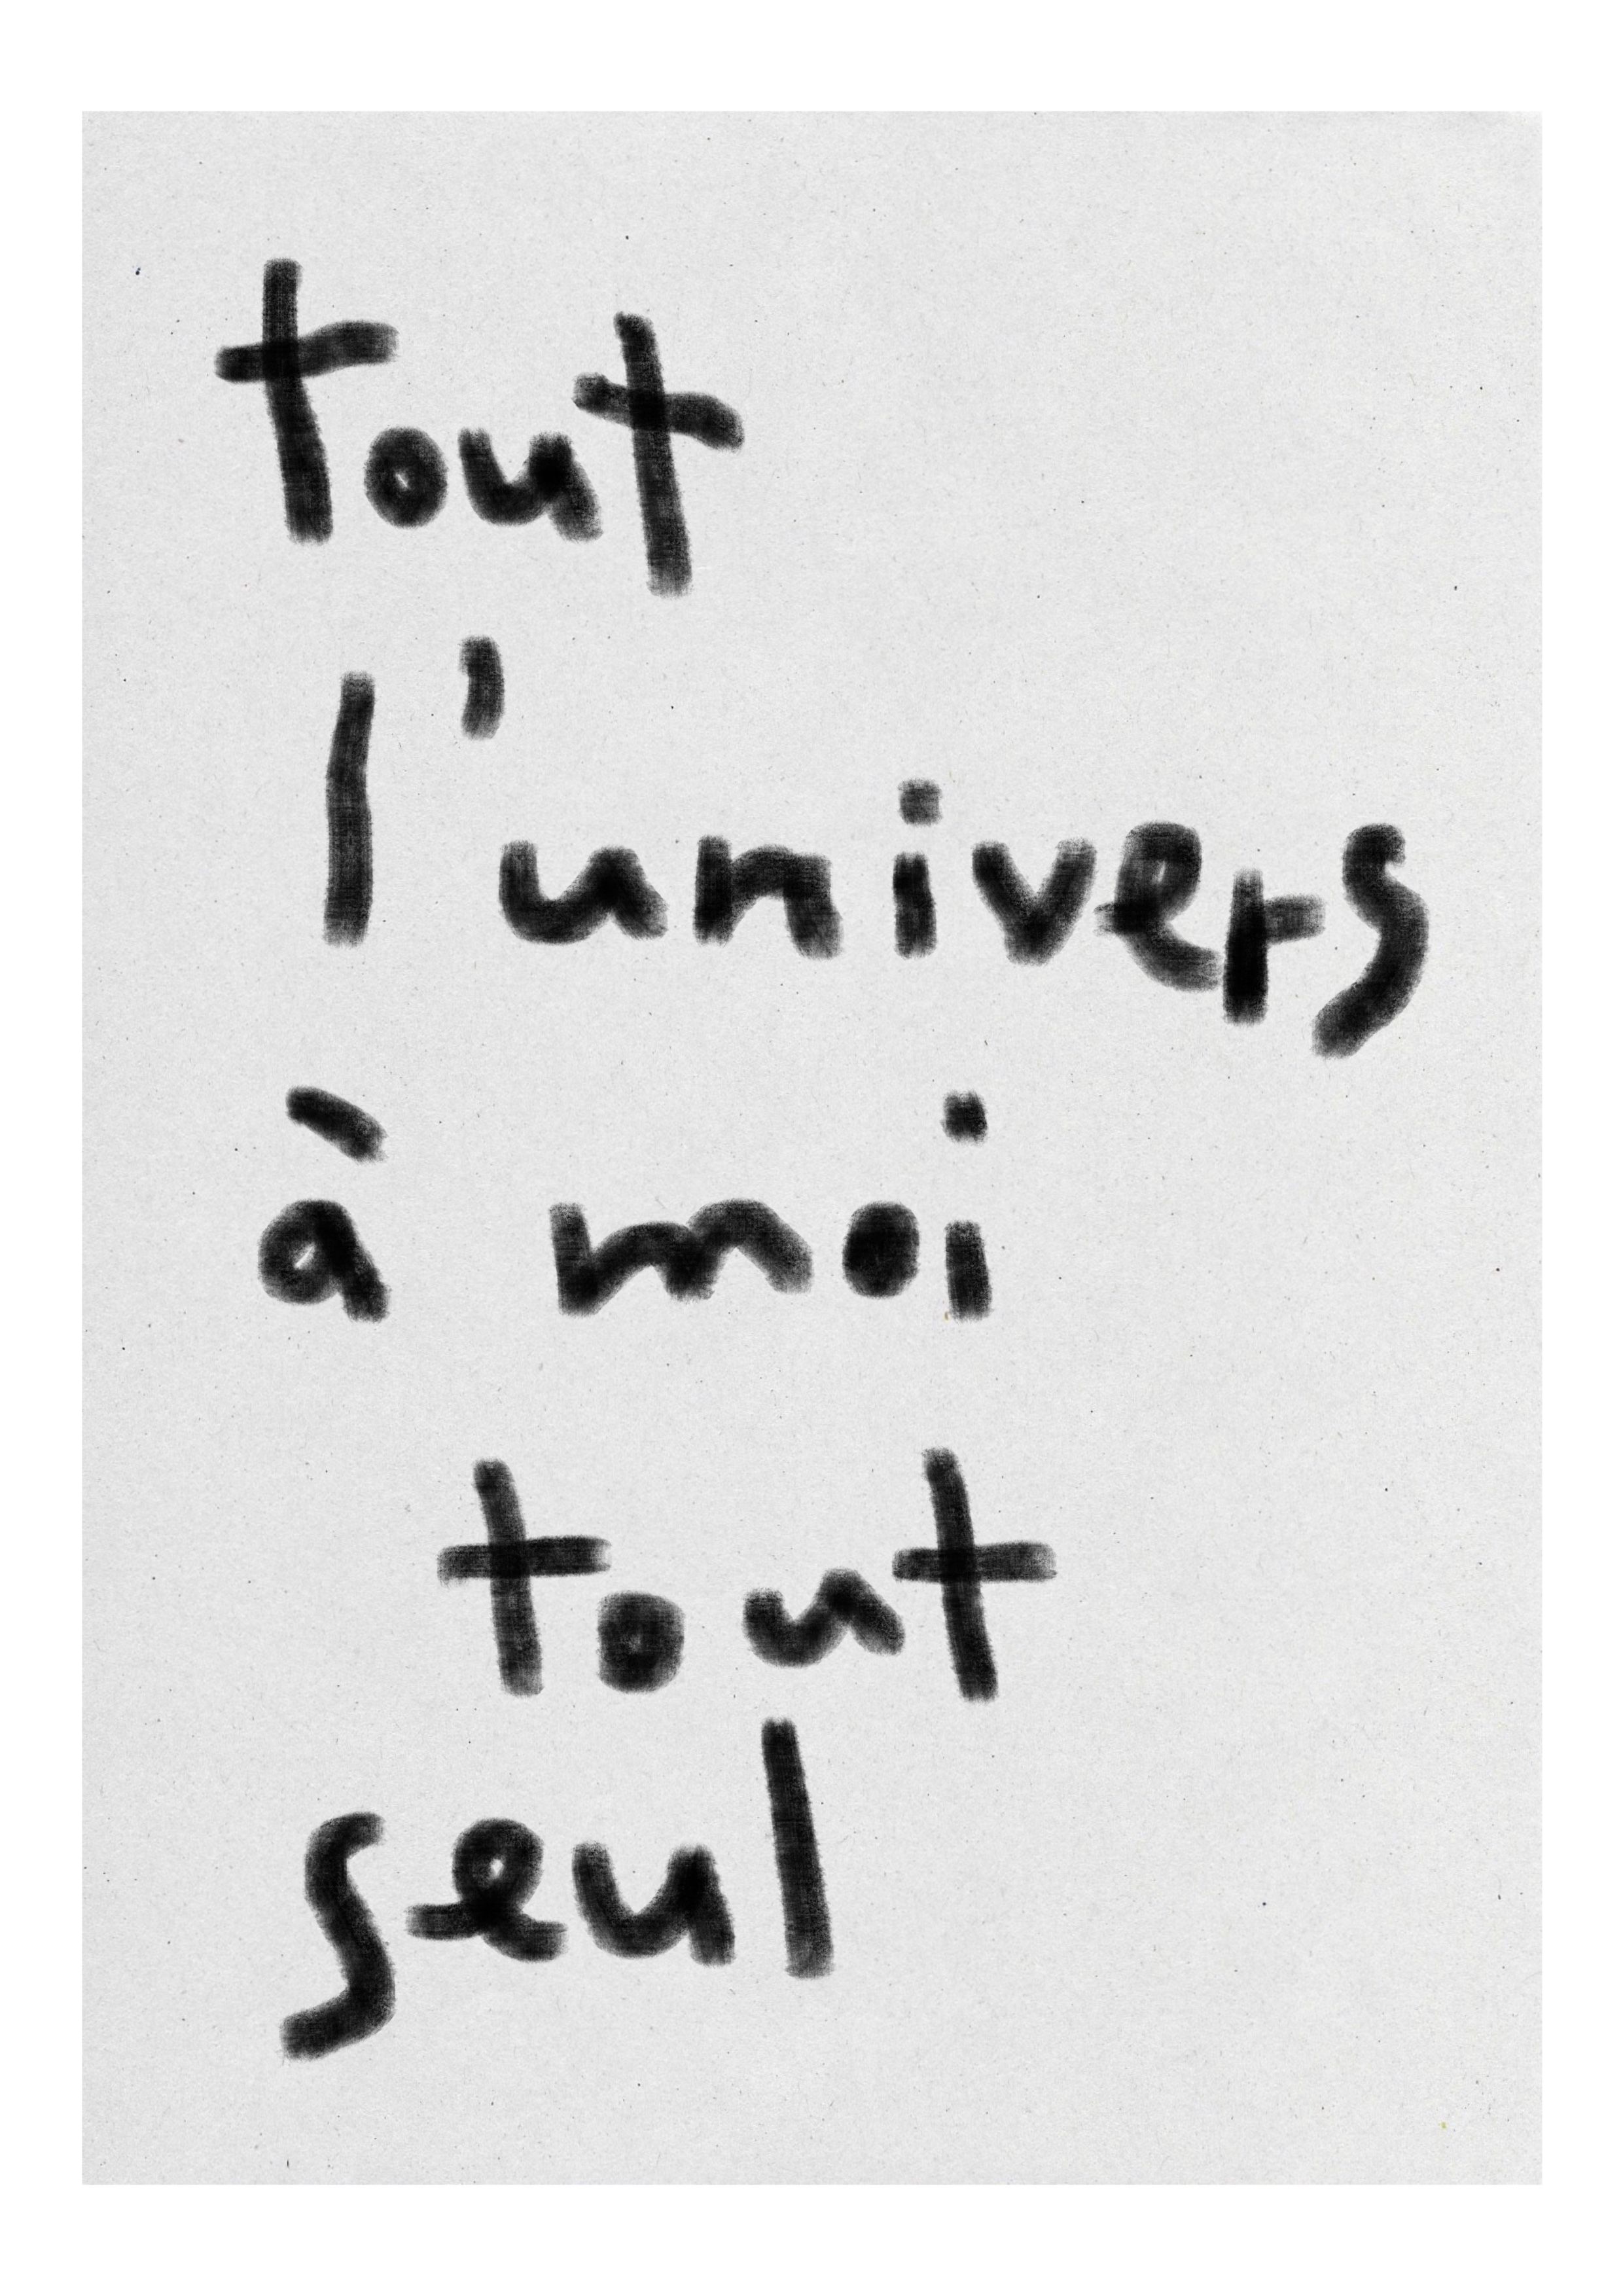 tout
l'univers
à moi
tout
seul